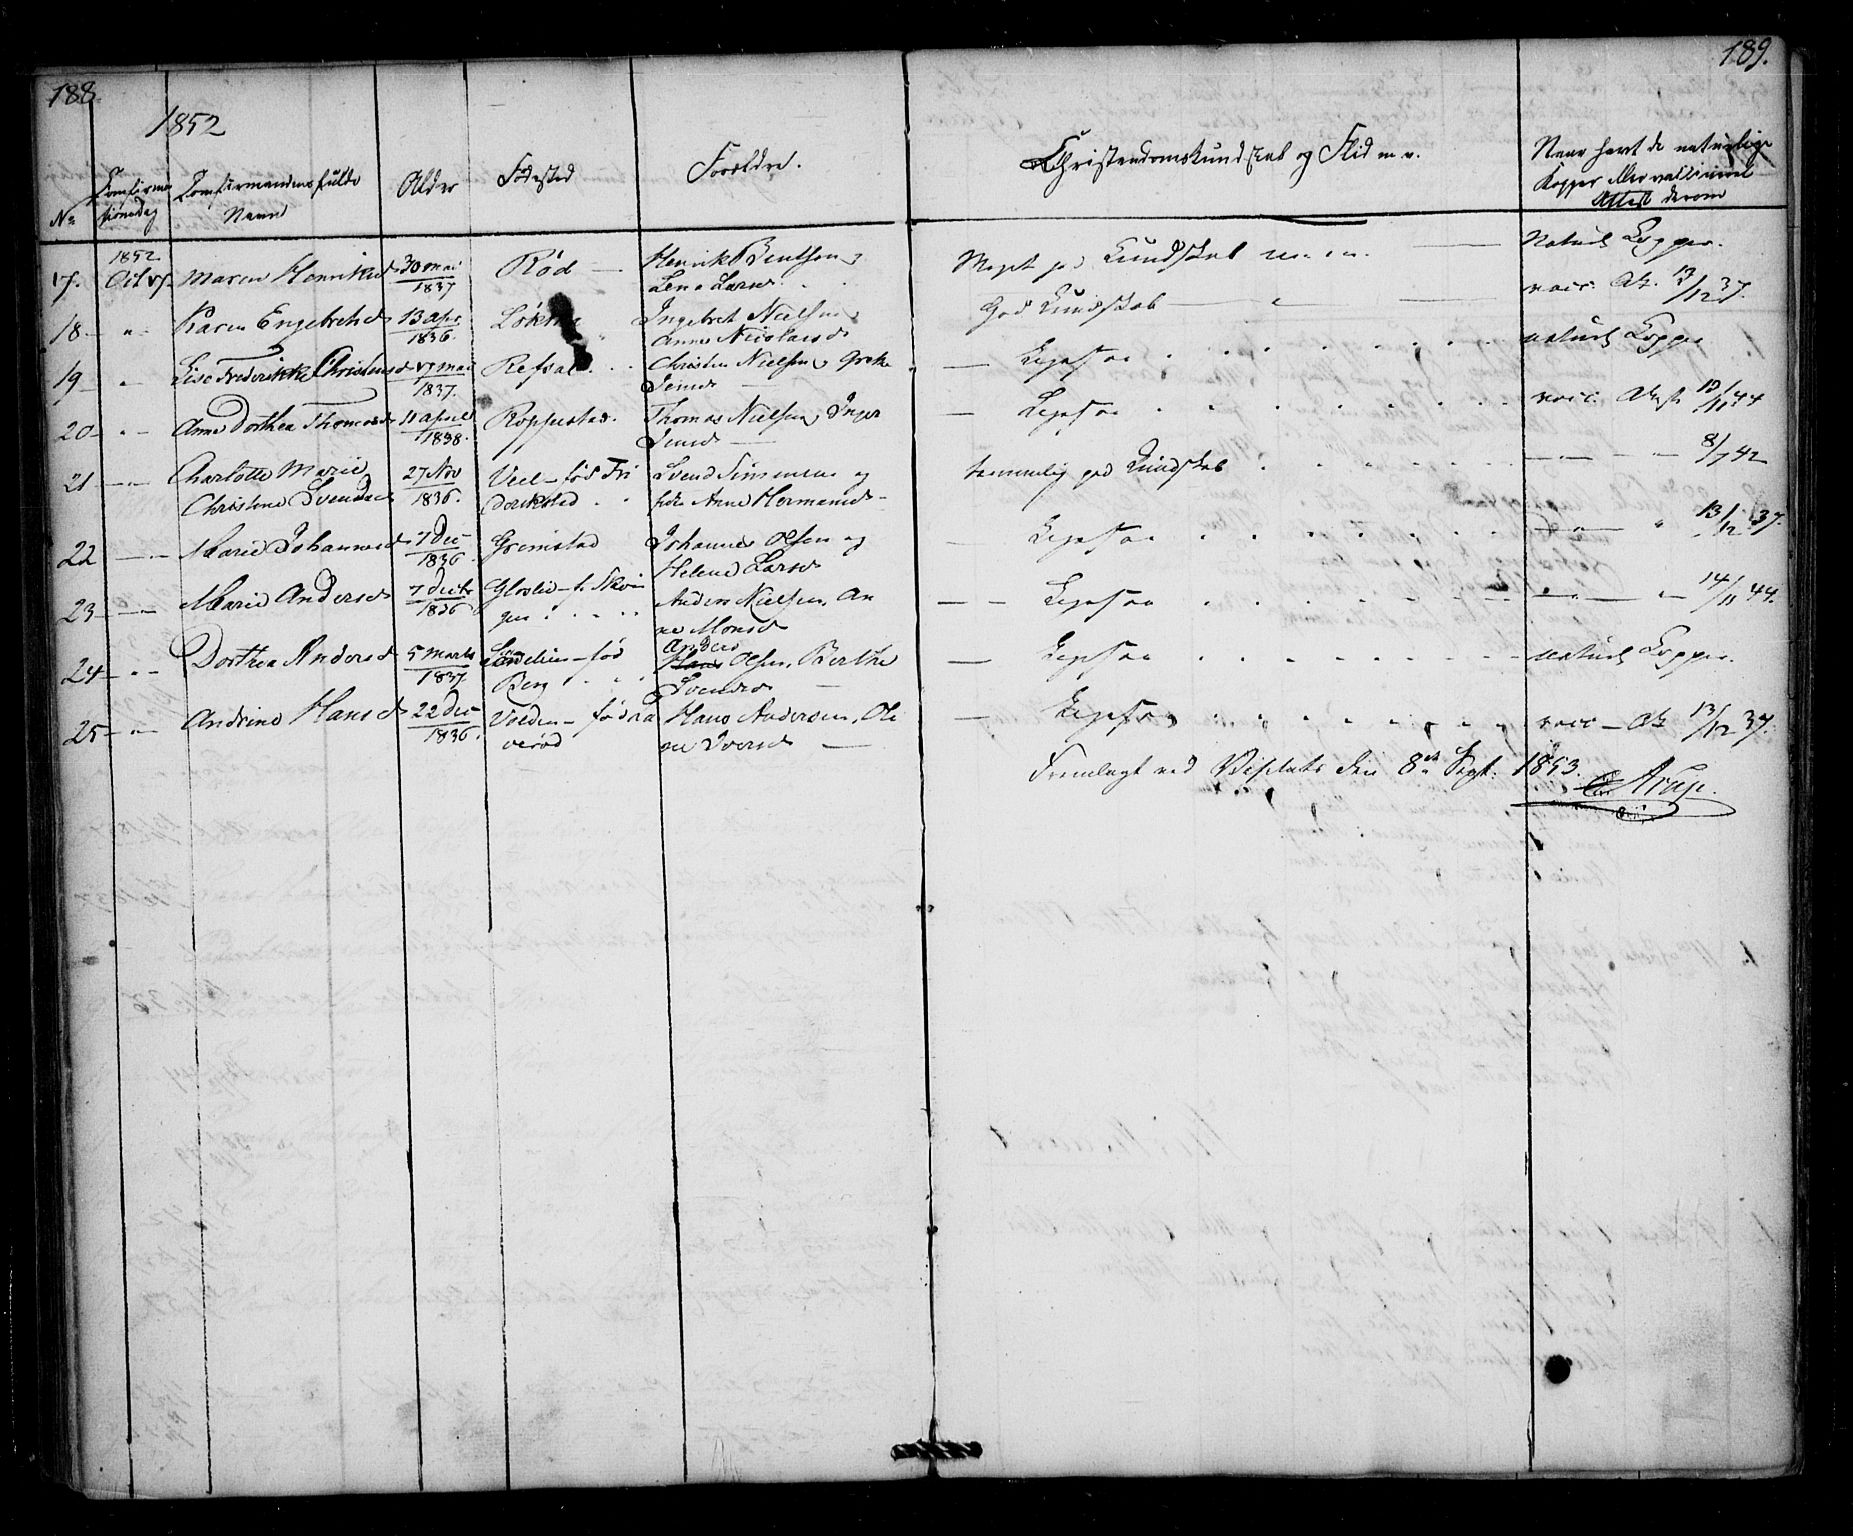 188
189.
1852
No
Confirma
tionsdag
Confirmandens fulde
Navn
Alder
Födested
Forældre.
Christendomskundskab og Flid m. v.
Naar havt de naturlige
Kopper eller vaccineret
Attest derom
17. 1852 Oct 17. Maren Henriksd 30 mai 1837 Röd — Henrik Bentsen, Lena Larsd. Meget god Kundskab — Naturl. Kopper.
18 — " — Karen Engebretsd 13 apr 1836. Ingebret Nielsen, Anne Nicolaisd God Kundskab — " — vacc. At. 13/12 37.
19 — " Lise Frederikke Christensd 17 mai 1837. Refsal . . Christen Nielsen, Grethe Jensd — Ligesaa . . . . . naturl. Kopper
20 — " — Anne Dorthea Thomasd 11 april 1838. Roppestad. Thomas Nielsen, Inger Jensd — — Ligesaa . . . . . vacc. Attest 12/11 44
21 — " — Charlotte Marie Christine Svendsd 27 Nov 1836. Veel — född Fri derikstad . Svend Simmens og Anne Hermansd — temmelig god Kundskab . . . — " — 8/7 42
22 — " — Marie Johannesd 7 Dec 1836. Gremstad Johannes Olsen og Helene Larsd — Ligesaa . . . . . — " — " 13/12 37.
23 — " — Marie Andersd 7 Decbr 1836 Anders Nielsen, An ne Monsd — — Ligesaa . . . . . — " — 14/11 44.
24 — " — Dorthea Andersd 5 Marts 1837. född Berg Anders Olsen, Berthe Svendsd — — Ligesaa . . . . . naturl. Kopper.
25 — " — Andrine Hansd 22 Dec 1836. Volden — född Ra verød Hans Andersen, Ole ne Iversd — — Ligesaa . . . . . vacc — At 13/12 37.
Fremlagt ved Visitats den 8de Sept. 1853.
Arup.